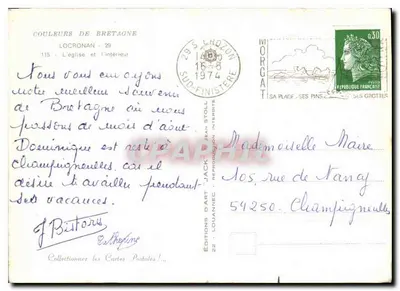 COULEURS DE BRETAGNE
LOCRONAN - 29
115 - L'église et l'intérieur
Nous vous envoyons
notre meilleur souvenir
de Bretagne où nous
passons de mois d'août.
Dominique est resté à
Champigneulles, car il
désire travailler pendant
ses vacances.
J Bistors
Collectionner les Cartes Postales !...
EDITIONS D'ART "JACK"
29 S CROZON
16-8
1974
SUD-FINISTERE
MORGAT
SA PLAGE, SES PINS, SES GROTTES
0,30
REPUBLIQUE FRANCAISE
Mademoiselle Marie
105, rue de Nancy
54250 - Champigneulles